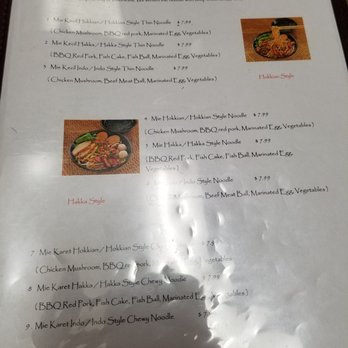 1 Mie Kecil Hokkian / Hokkian Style Thin Noodle $ 7.99
( Chicken Mushroom, BBQ red pork, Marinated Egg, Vegetables )
2 Mie Kecil Hakka / Hakka Style Thin Noodle $ 7.99
( BBQ Red Pork, Fish Cake, Fish Ball, Marinated Egg, Vegetables )
3 Mie Kecil Indo / Indo Style Thin Noodle $ 7.99
( Chicken Mushroom, Beef Meat Ball, Marinated Egg, Vegetables )
Hokkian Style
4 Mie Hokkian / Hokkian Style Noodle $ 7.99
( Chicken Mushroom, BBQ red pork, Marinated Egg, Vegetables )
5 Mie Hakka / Hakka Style Noodle $ 7.99
( BBQ Red Pork, Fish Cake, Fish Ball, Marinated Egg,
Vegetables )
/ Indo Style Noodle $ 7.99
Mushroom, Beef Meat Ball, Marinated Egg, Vegetables )
Hakka Style
7 Mie Karet Hokkian / Hokkian Style
( Chicken Mushroom, BBQ red pork,
8 Mie Karet Hakka / Hakka Style Chewy Noodle 7.99
( BBQ Red Pork, Fish Cake, Fish Ball, Marinated Egg, Vegetables )
9 Mie Karet Indo / Indo Style Chewy Noodle